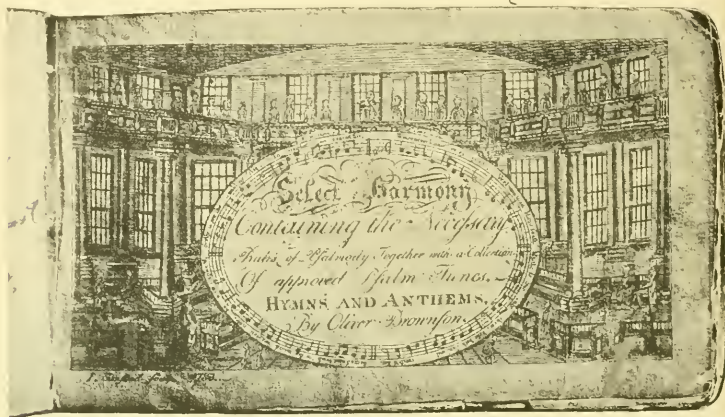 Select Harmony
Containing the Necessary
Rules of Psalmody Together with a Collection
Of approved Psalm Tunes.
HYMNS AND ANTHEMS.
By Oliver Brownson